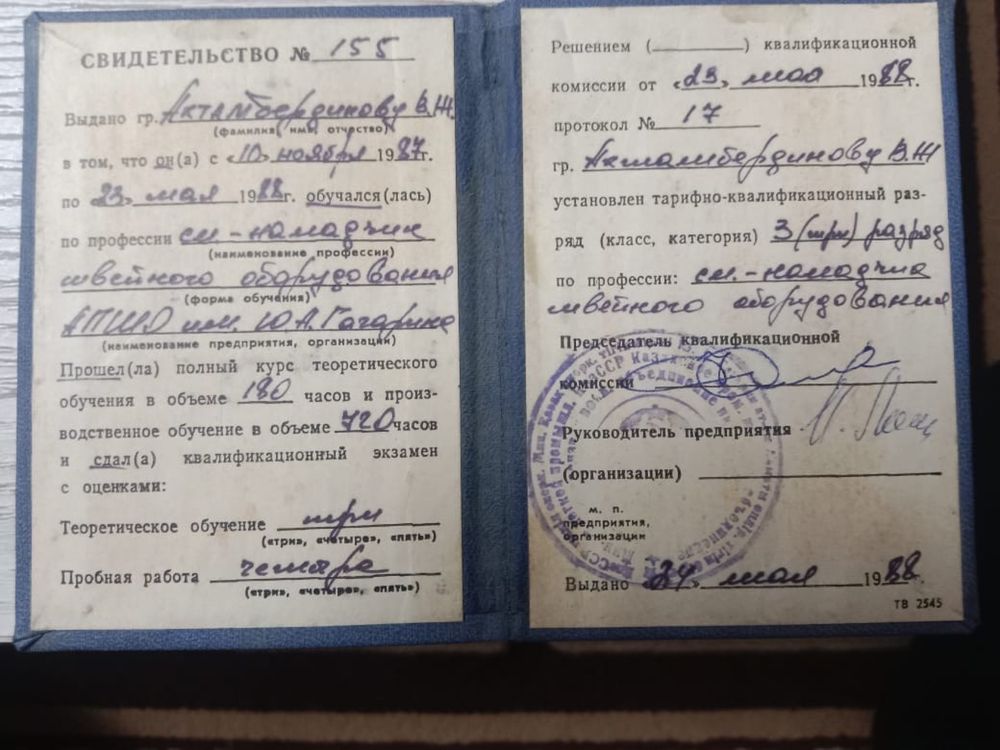 СВИДЕТЕЛЬСТВО № 155
Выдано гр. Актамбердинову В.Ж.
(фамилия, имя, отчество)
в том, что он(а) с «10» ноября 1987г.
по «23» мая 1988г. обучался(лась)
по профессии сл.-наладчик
(наименование профессии)
швейного оборудования
(форма обучения)
АПШО им. Ю.А. Гагарина
(наименование предприятия, организации)
Прошел(ла) полный курс теоретического
обучения в объеме 180 часов и произ-
водственное обучение в объеме 720 часов
и сдал(а) квалификационный экзамен
с оценками:
Теоретическое обучение три
(«три», «четыре», «пять»)
Пробная работа четыре
(«три», «четыре», «пять»)
Решением (        ) квалификационной
комиссии от «23» мая 1988г.
протокол № 17
гр. Актамбердинову В.Ж
установлен тарифно-квалификационный раз-
ряд (класс, категория) 3 (три) разряд
по профессии: сл.-наладчика
швейного оборудования
Председатель квалификационной
комиссии
Руководитель предприятия
(организации)
м. п.
предприятия,
организации
Выдано «24» мая 1988г.
ТВ 2545